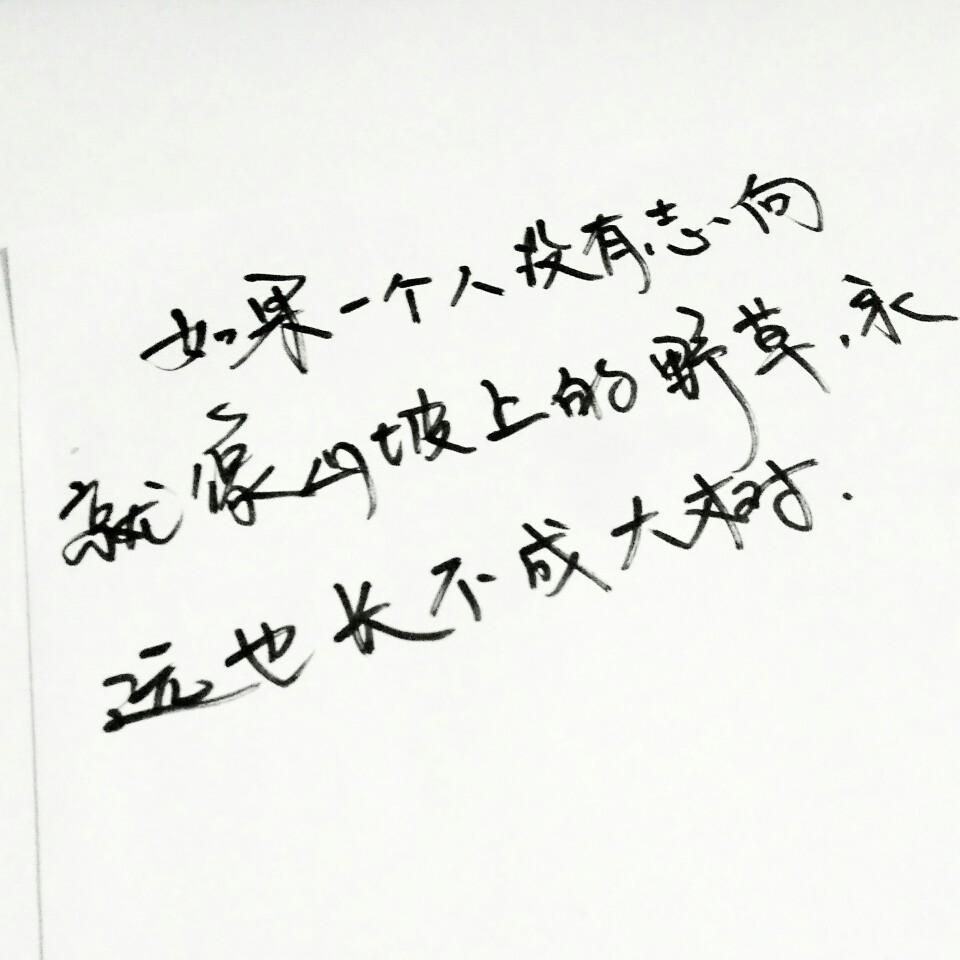 如果一个人没有志向
就像山坡上的野草.永
远也长不成大树.